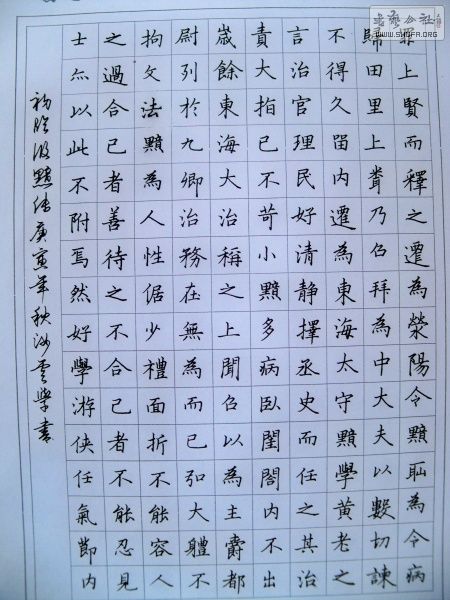 書藝公社
WWW.SHUFA.ORG
罪上賢而釋之遷為榮陽令黯耻為令病
歸田里上聞乃召拜為中大夫以數切諫
不得久留內遷為東海太守黯學黃老之
言治官理民好清靜擇丞史而任之其治
責大指已不苛小黯多病臥閨閤內不出
歲餘東海大治稱之上聞召以為主爵都
尉列於九卿治務在無為而已弘大體不
拘文法黯為人性倨少禮面折不能容人
之過合己者善待之不合己者不能忍見
士亦以此不附焉然好學游俠任氣節內
初臨汲黯傳庚寅年秋雲學書